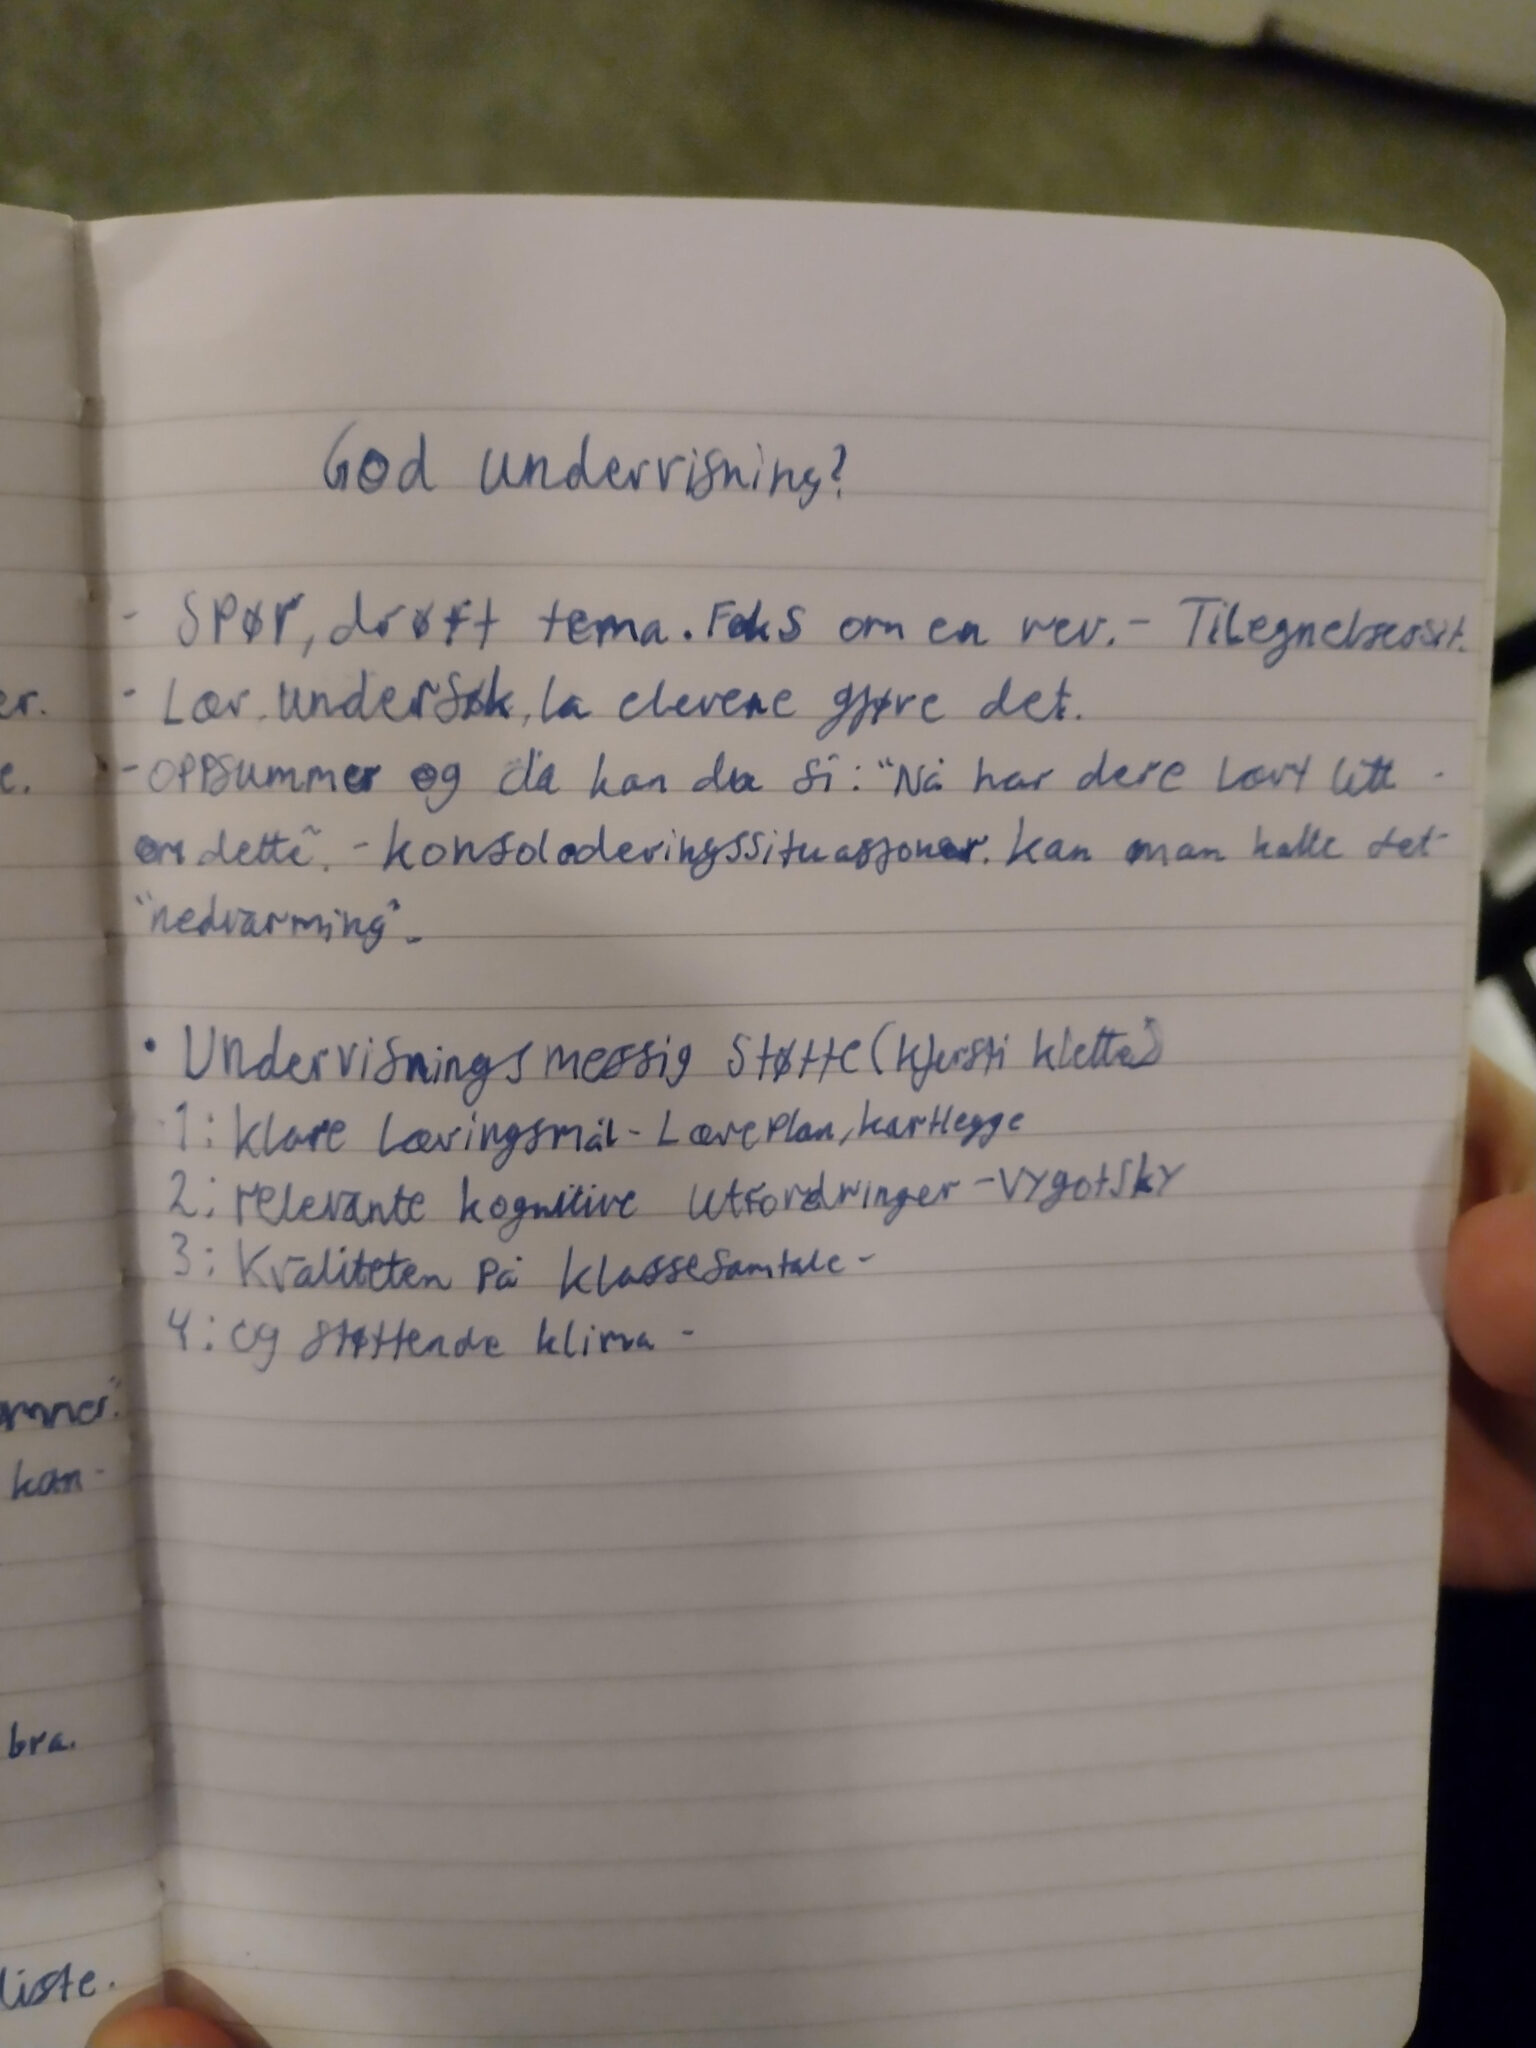 God undervisning?
- Spør, drøft tema. Feks om en rev. - Tilegnelsessit.
- Lær, undersøk, la elevene gjøre det.
- oppsummer og da kan du si: "Nå har dere lært litt -
om dette". - konsoloderingssituasjoner. kan man kalle det
"nedvarming".
• Undervisningsmessig støtte (kjersti klette)
1: klare læringsmål - Læreplan, kartlegge
2: relevante kognitive utfordringer - vygotsky
3: Kvaliteten på klassesamtale -
4: og støttende klima -
er.
e.
kan -
bra.
liste.